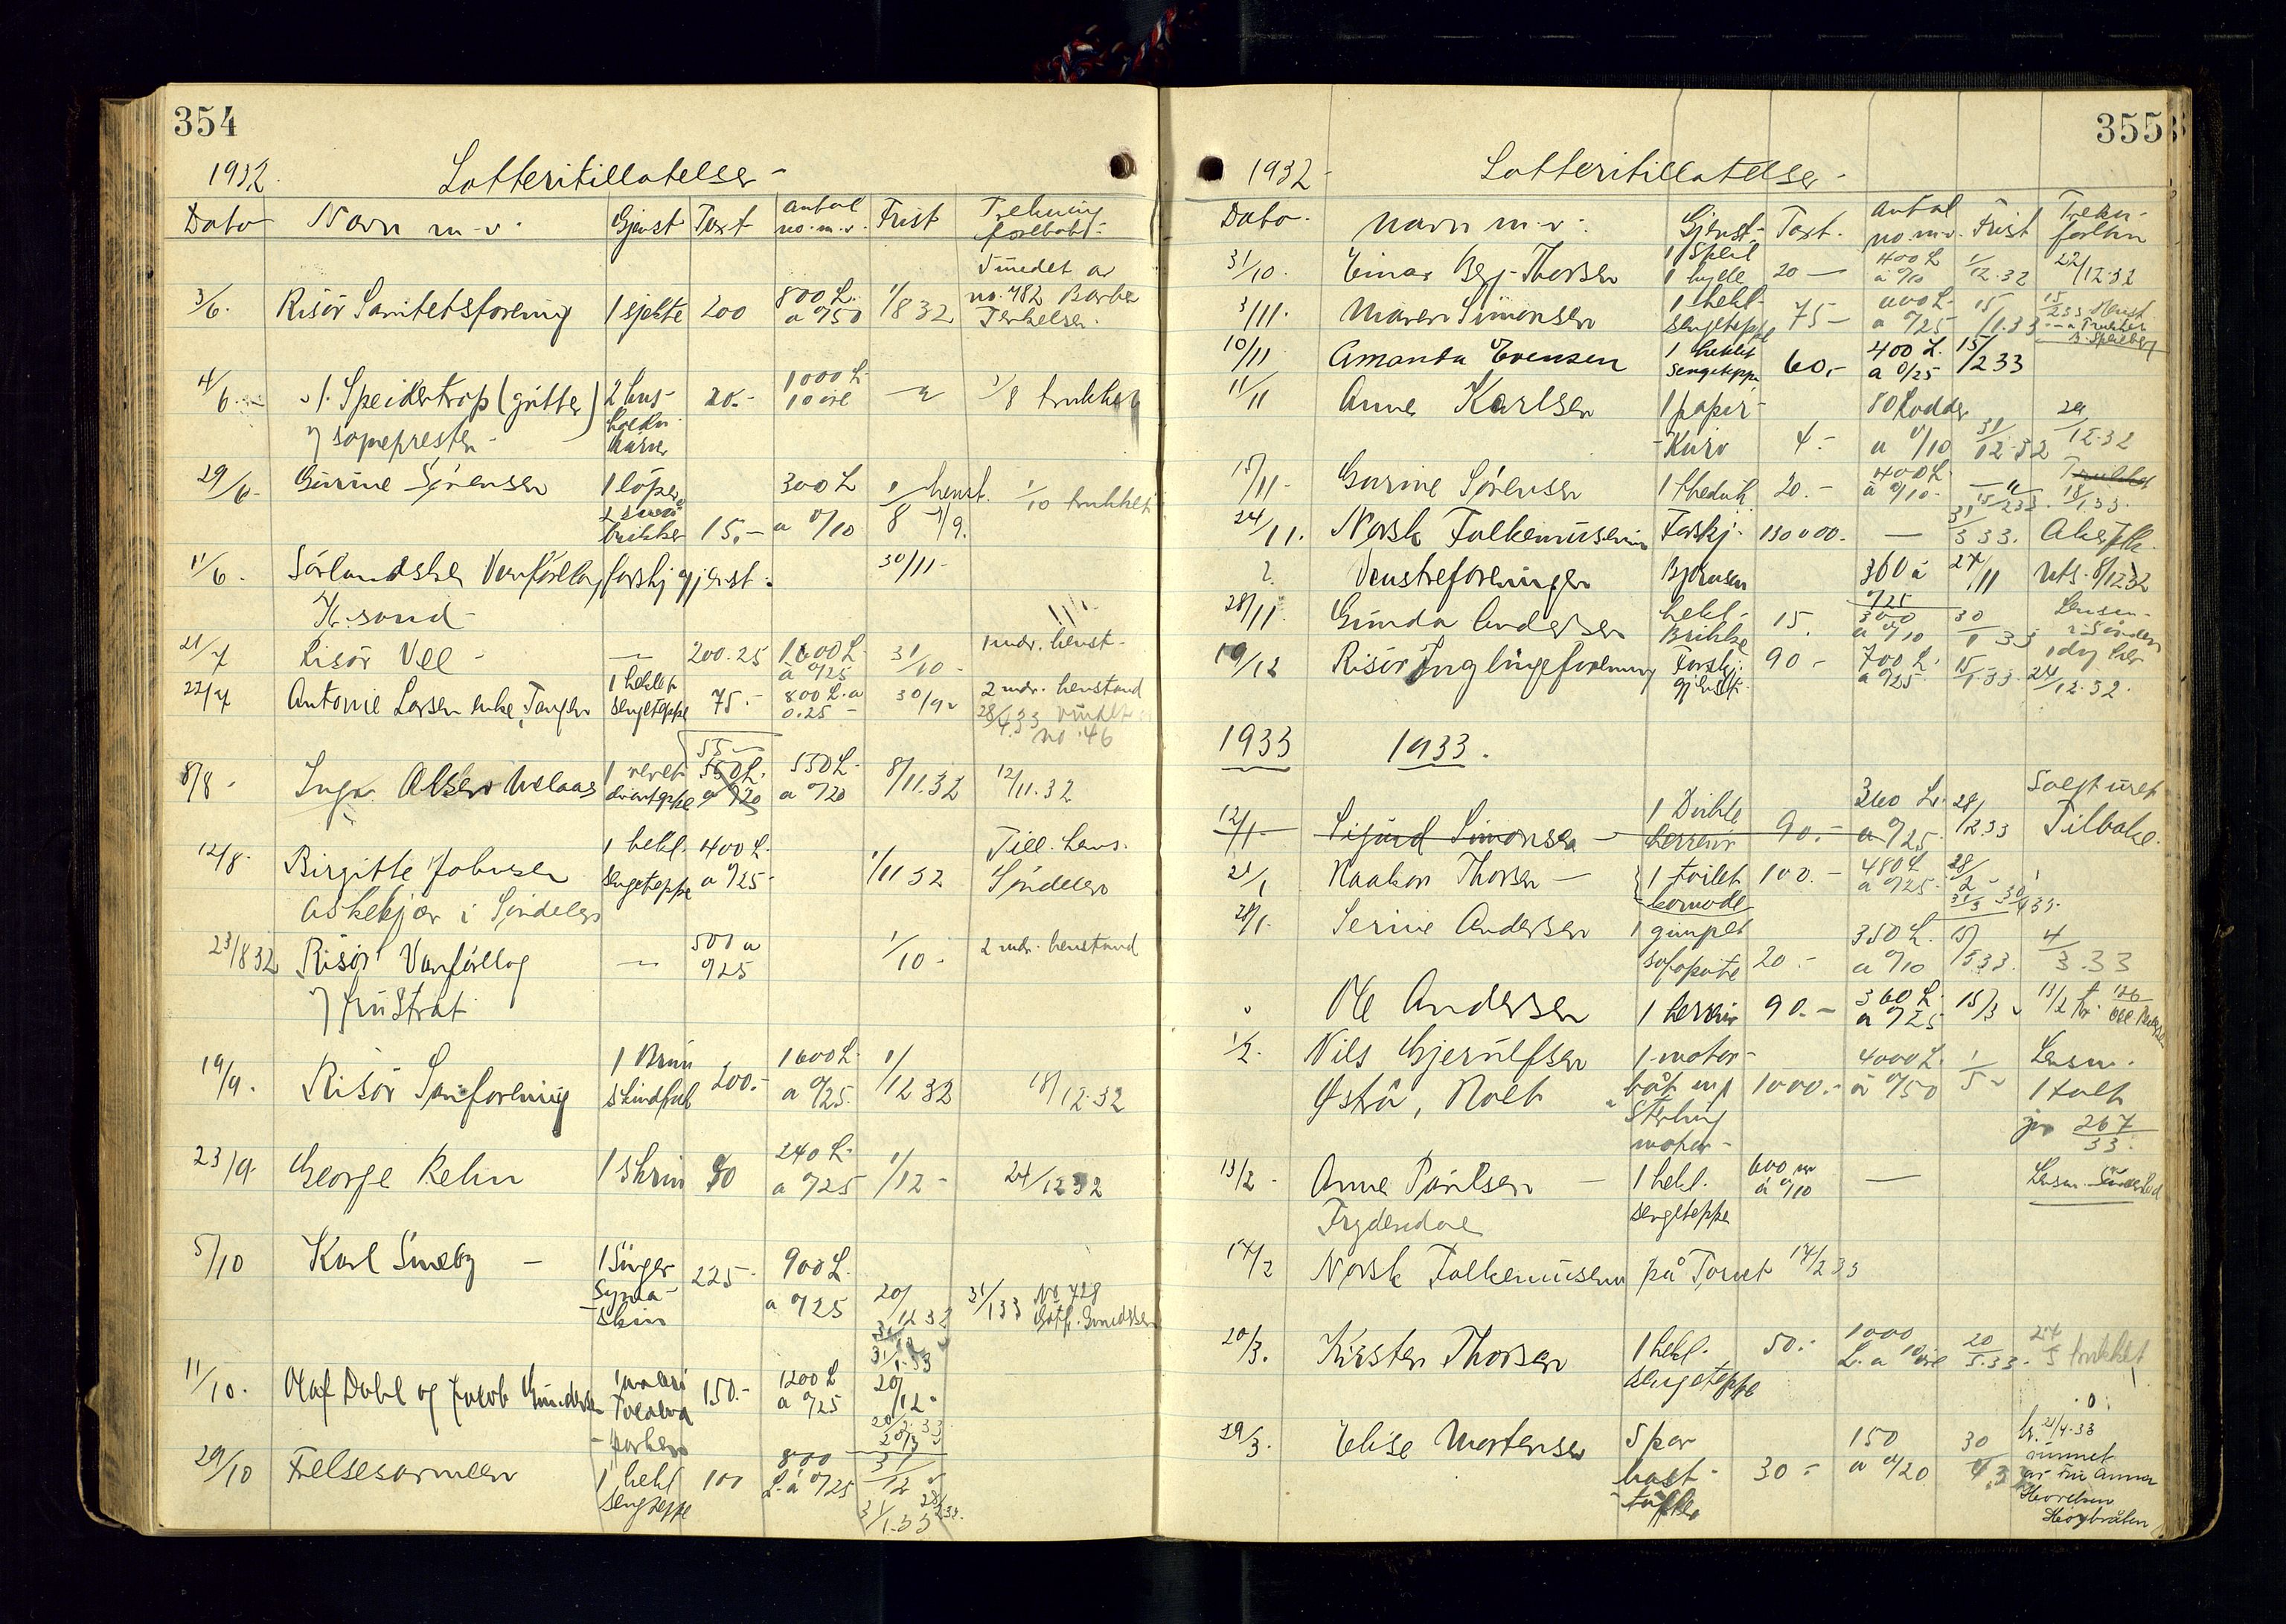 354
1932. Lotteritillatelser -
Dato Navn m.v. Gjenst. Taxt Antal no. m.v. Frist Trekning forlbet:
3/6. Risør Sanitetsforening 1 sjekte 200 800 L. a 0/50 1/8 32 Vundet av no. 782 Barber Terkelsen.
4/6. 1. Speidertrop (gutter) 2 hus- 20.- 1000 L. 10 øre 1/8 trukket
v/ sogneprester -
29/6. Gurine Sørensen 1 løper 2 små brikker 15.- 300 L a 0/10 1/8 henst. 1/9. 1/10 trukket
11/6. Sørlandske Vanførelag forskj gjenst. 30/11-
Kr.sand -
21/7 Risør Vel - 200.25 1600 L. à 0/25 31/10 - 1 mdr. henst.
22/7 Antonie Larsen enke, Tangen 1 heklet sengeteppe 75.- 800 L. a 0.25 - 30/9 2 mdr. henstand 28/4.33 no. 46
8/8 - Inga Olsen Melaas 1 vevet divanteppe 55- 550 L. a 0/20 550 L. a 0/20 8/11.32 12/11.32
12/8. Birgitte Johnsen 1 hekl. sengeteppe 400 L. a 0/25- 1/11 32 Till. lens. Søndeled
Askekjær i Søndeled
23/8 32 Risør Vanførlag 500 a 0/25 1/10 - 2 mdr. henstand
v/ fru Strat
19/9. Risør Sanforening 1 Brun skindful 200.- 1600 L. a 0/25. 1/12 32 18/12.32
23/9. George Rehn 1 skrin 80 240 L. a 0/25 1/12 - 24/12 32
5/10 Karl Smeby - 1 Singer Syma- skin 225- 900 L. a 0/25 20/12 32 31/1.33 31/1 33 No. 728 Gotf. Gundersen
11/10. Olaf Dahl og Jacob Gundersen 1 maleri 150.- 1200 L a 0/25 20/12- 20/2.33
29/10 Frelsesarmeen 1 hekl sengteppe 100 800 L. à 0/25 31/12 31/1.33 28/2 33.
355
1932 - Lotteritillatelser -
Dato. Navn m.v. Gjenst. Taxt. Antal no. m.v. Frist Trekn- forlbn
31/10. Einar Berg-Thorsen 1 speil 1 hylle 20- 400 L a 0/10 1/12.32 22/12.32
3/11. Maren Simonsen 1 hekl- sengeteppe 75- 600 L. a 0/25 15/1.33 15/2 33 Henst
10/11 Amanda Evensen 1 heklet sengeteppe 60.- 400 L. a 0/25 15/2 33
11/11 Anne Karlsen 1 papir- kurv 4.- 80 Lodder a 0/10 31/12.32 29/12.32
15/11- Gurine Sørensen 1 theduk 20.- 400 L. à 0/10- 15/2 33 Trukket 18/1.33.
24/11. Norsk Folkemuseum Forskj. 130000. - 31/3 33. Akers
Venstreforeningen Bjørnsen 360 à 0/25 27/11 Uts. 8/12 32
28/11. Gunda Andersen hekl- Brikke 15. 300 a 0/10 30/1 33
19/12 Risør Ynglingeforening Forskj. gjenst. 90.- 700 L. a 0/25 15/1.33 24/12.32.
1933 1933.
12/1- Sigurd Simonsen - 1 Dukke herreur 90.- 360 L. a 0/25 28/2 33 Solgt uret Tilbake.
21/1 Haakon Thorsen - 1 toilet komode 100.- 480 L. a 0/25 28/2- 31/3 30/4 33.
28/1. Serine Andersen 1 gumpet sofapute 20.- 350 L. a 0/10 15/5 33. 4/3.33
Ole Andersen 1 herreur 90.- 360 L. a 0/25 15/3
1/2. Nils Gjerulfsen 1 motor- båt m/ Sterling motor- 1000.- 4000 L. à 0/50 1/5 Lensm. Holt jr. 267/33.
Østrå, Holt
13/2 - Anne Paulsen - 1 hekl. sengeteppe 600 nr à 0/10 - Lensm. Søndeled
Frydendal
17/2 Norsk Folkemuseum på Torvet 17/2 33
20/3. Kirsten Thorsen 1 hekl. sengeteppe 50.- 1000 L. a 10 øre 20/5.33. 27/5 trukket
29/3. Elise Mortensen 5 par bast- tøfler 30.- 150 a 0/20 30/4 33 tr. 21/4.33 vunnet av fru Anna Horven Høybråten